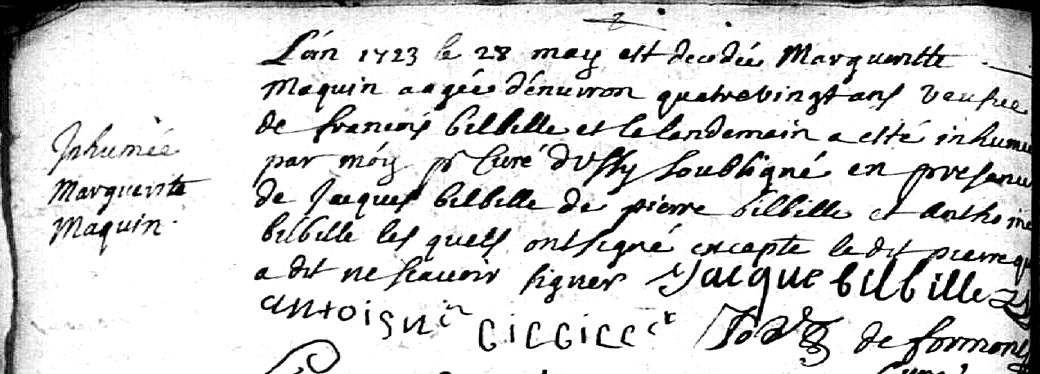 L'an 1723 le 28 may est decedée Margueritte
Maquin aagée d'enuiron quatrevingt ans veufue
de francois bilbille et le landemain a esté inhumée
Inhumée
par móy pr Curé d'Ussy soubsigné en presence
Margueritte
de Jacques bilbille de pierre bilbille et Anthoine
Maquin.
bilbille les quels ont signé excepté le dit pierre qui
a dit ne scauoir signer Jacque bilbille
antoisne bilbille de formon